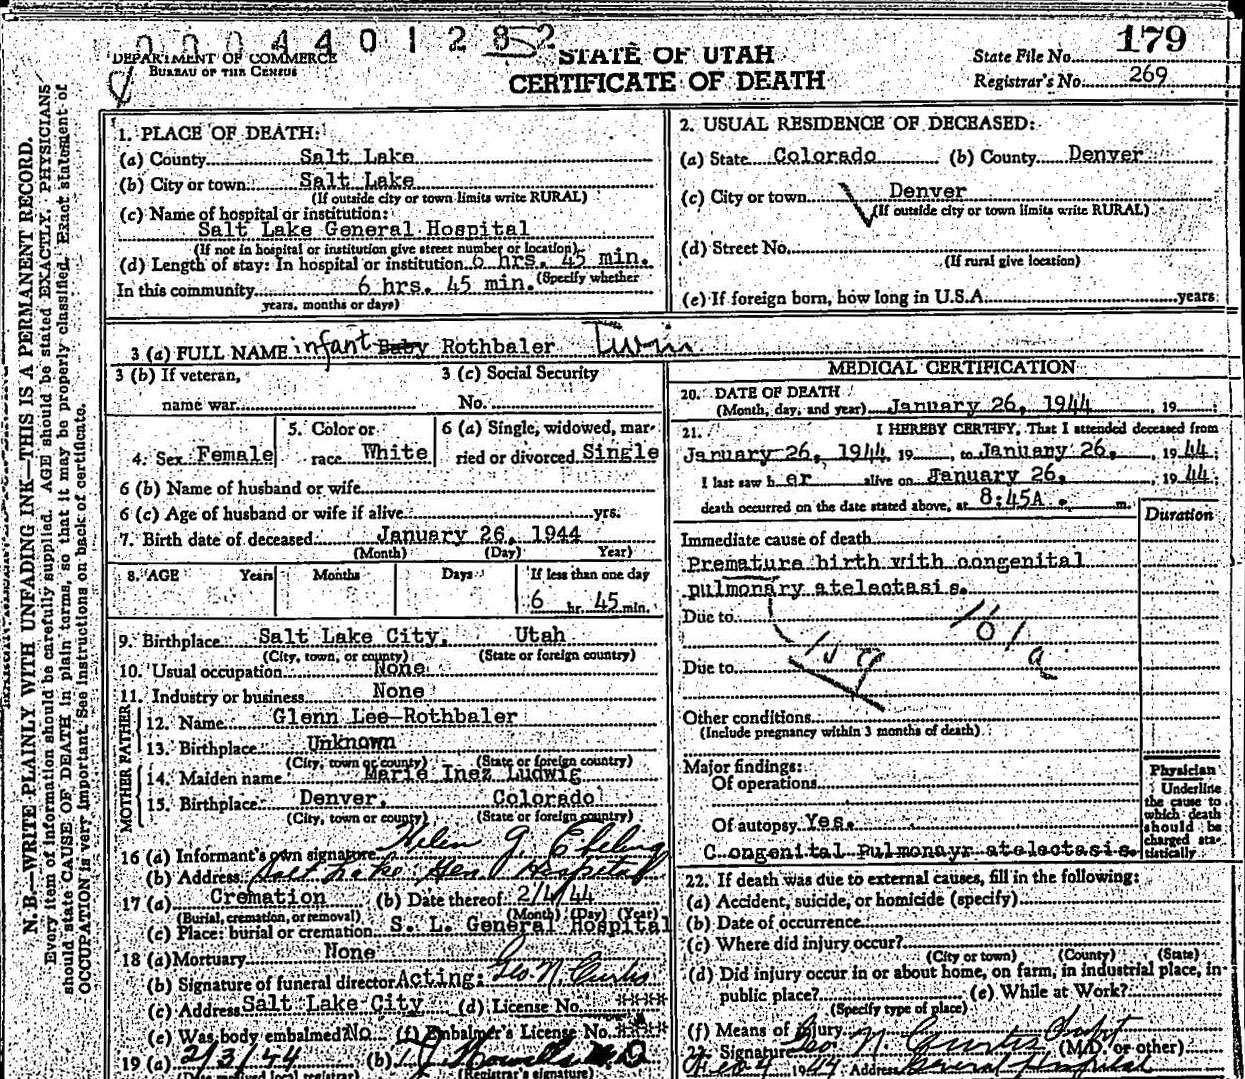 0 0 0 4 4 0 1 2 8 5 2
DEPARTMENT OF COMMERCE
BUREAU OF THE CENSUS
STATE OF UTAH
CERTIFICATE OF DEATH
State File No. 179
Registrar's No. 269
N. B.—WRITE PLAINLY WITH UNFADING INK—THIS IS A PERMANENT RECORD.
Every item of information should be carefully supplied. AGE should be stated EXACTLY. PHYSICIANS
should state CAUSE OF DEATH in plain terms, so that it may be properly classified. Exact statement of
OCCUPATION is very important. See instructions on back of certificate.
1. PLACE OF DEATH:
(a) County Salt Lake
(b) City or town Salt Lake
(If outside city or town limits write RURAL)
(c) Name of hospital or institution:
Salt Lake General Hospital
(If not in hospital or institution give street number or location)
(d) Length of stay: In hospital or institution 6 hrs. 45 min.
(Specify whether
In this community 6 hrs. 45 min.
years, months or days)
2. USUAL RESIDENCE OF DECEASED:
(a) State Colorado (b) County Denver
(c) City or town Denver
(If outside city or town limits write RURAL)
(d) Street No.
(If rural give location)
(e) If foreign born, how long in U.S.A. years
3 (a) FULL NAME infant Baby Rothbaler Twin
3 (b) If veteran,
name war
3 (c) Social Security
No.
4. Sex Female
5. Color or
race White
6 (a) Single, widowed, mar-
ried or divorced Single
6 (b) Name of husband or wife
6 (c) Age of husband or wife if alive yrs.
7. Birth date of deceased January 26, 1944
(Month) (Day) Year)
8. AGE Years Months Days If less than one day
6 hr. 45 min.
9. Birthplace Salt Lake City, Utah
(City, town, or county) (State or foreign country)
10. Usual occupation None
11. Industry or business None
FATHER
12. Name Glenn Lee Rothbaler
13. Birthplace Unknown
(City, town or county) (State or foreign country)
MOTHER
14. Maiden name Marie Inez Ludwig
15. Birthplace Denver, Colorado
(City, town or county) (State or foreign country)
16 (a) Informant's own signature Helen J. Ebeling
(b) Address Salt Lake Gen. Hospital
17 (a) Cremation (b) Date thereof 2/4/44
(Burial, cremation, or removal) (Month) (Day) (Year)
(c) Place: burial or cremation S. L. General Hospital
18 (a) Mortuary None
(b) Signature of funeral director Acting: Geo. N. Curtis
(c) Address Salt Lake City (d) License No. ****
(e) Was body embalmed? No (f) Embalmer's License No. ****
19 (a) 2/3/44 (b) M.D.
(Date received local registrar) (Registrar's signature)
MEDICAL CERTIFICATION
20. DATE OF DEATH
(Month, day, and year) January 26, 1944, 19
21. I HEREBY CERTIFY, That I attended deceased from
January 26, 1944 19, to January 26, 1944;
I last saw her alive on January 26, 1944;
death occurred on the date stated above, at 8:45A. m.
Duration
Immediate cause of death
Premature birth with congenital
pulmonary atelectasis.
Due to 161a
159
Due to
Other conditions
(Include pregnancy within 3 months of death)
Major findings:
Of operations
Of autopsy Yes.
Congenital Pulmonayr atelectasis.
Physician
Underline
the cause to
which death
should be
charged sta-
tistically
22. If death was due to external causes, fill in the following:
(a) Accident, suicide, or homicide (specify)
(b) Date of occurrence
(c) Where did injury occur?
(City or town) (County) (State)
(d) Did injury occur in or about home, on farm, in industrial place, in
public place? (e) While at Work?
(Specify type of place)
(f) Means of injury
Signature Geo. N. Curtis Supt (M.D. or other)
Feb 4 1944 Address General Hospital